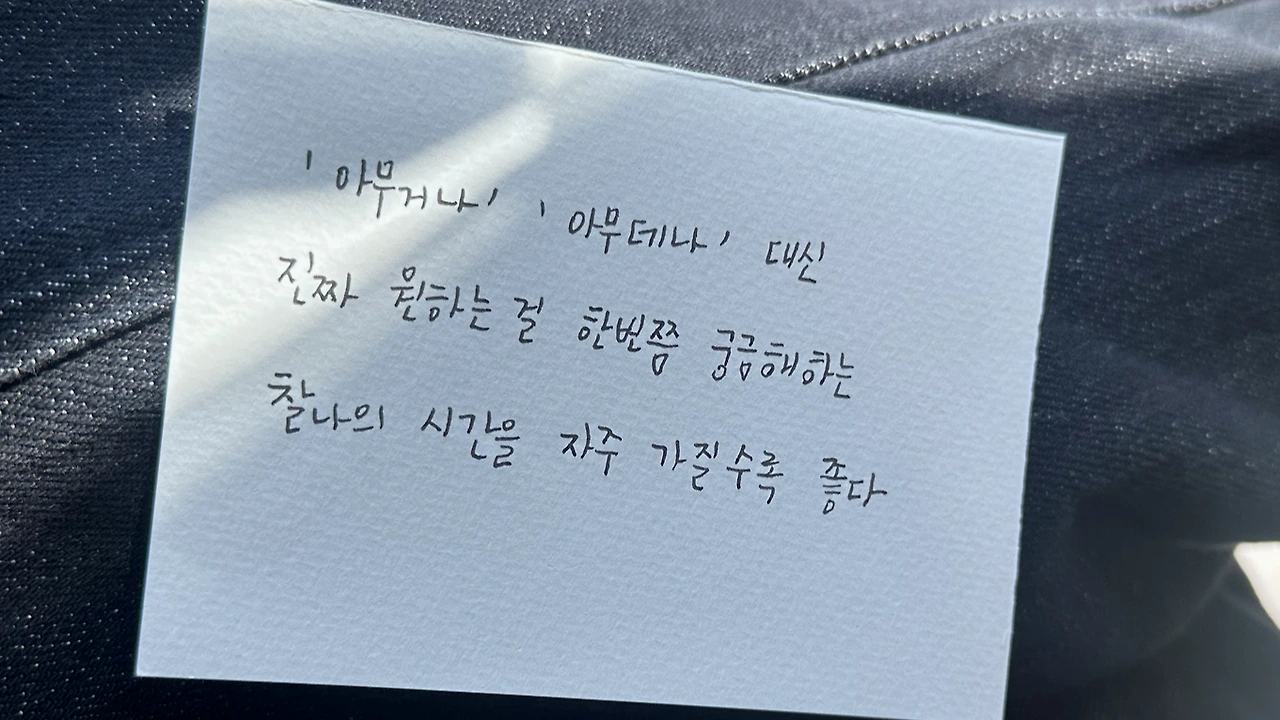 '아무거나' '아무데나' 대신
진짜 원하는 걸 한번쯤 궁금해하는
찰나의 시간을 자주 가질수록 좋다